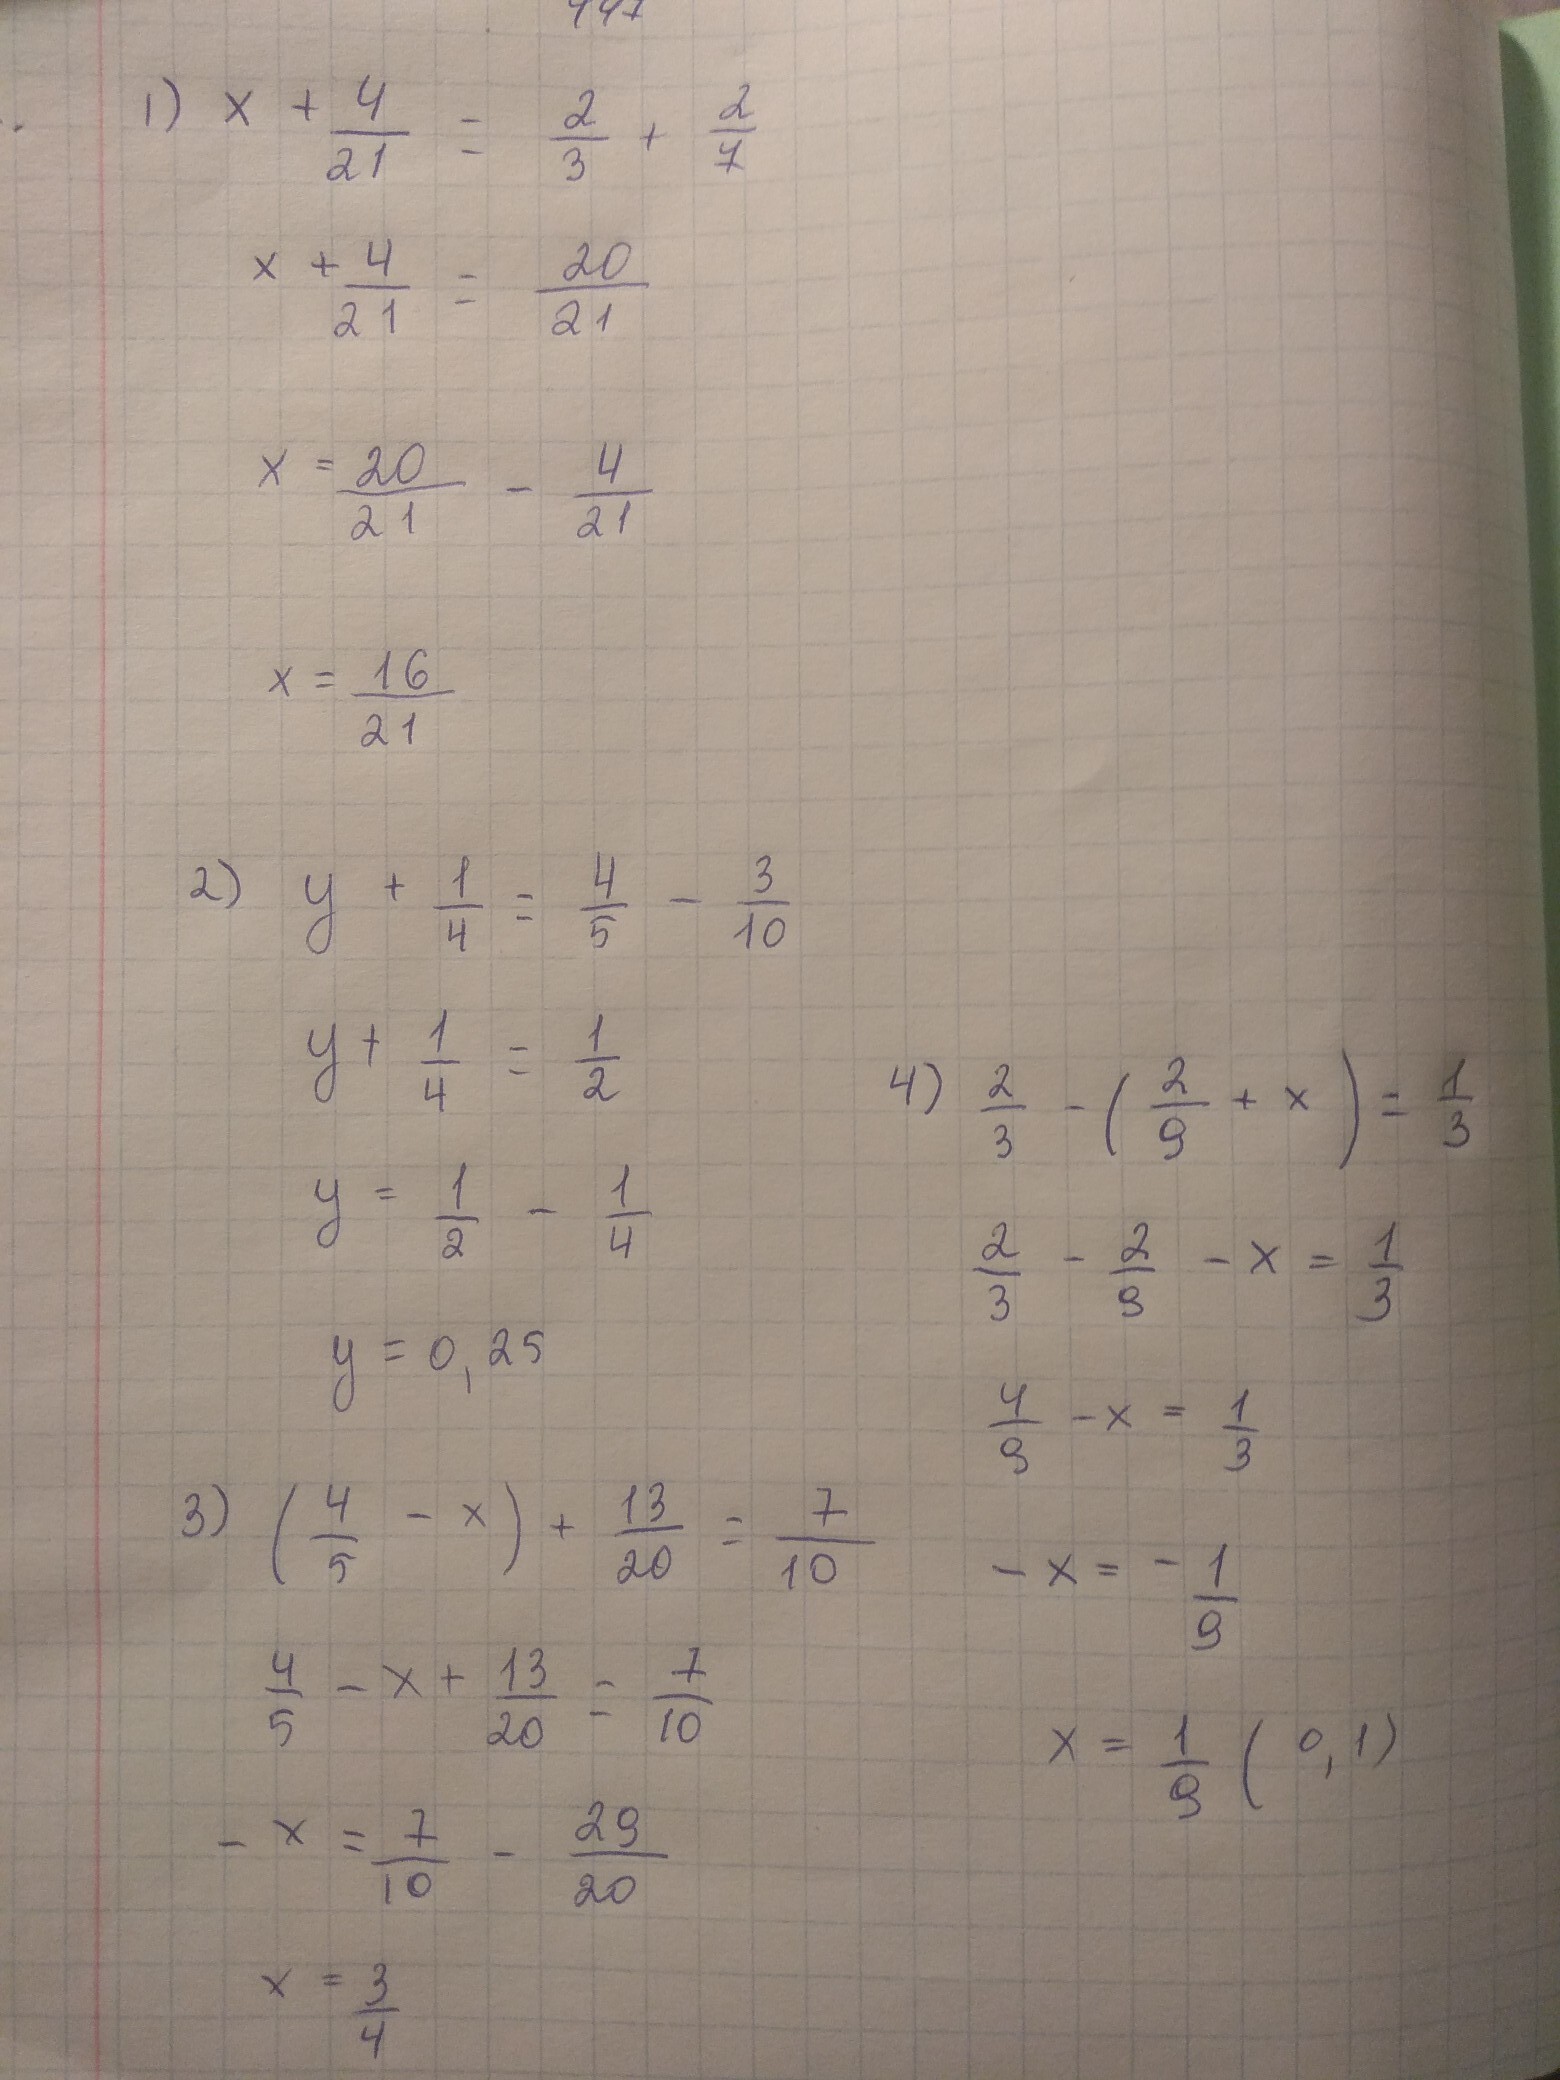 447
1) x + 4/21 = 2/3 + 2/7
x + 4/21 = 20/21
x = 20/21 - 4/21
x = 16/21
2) y + 1/4 = 4/5 - 3/10
y + 1/4 = 1/2
y = 1/2 - 1/4
y = 0,25
3) (4/5 - x) + 13/20 = 7/10
4/5 - x + 13/20 = 7/10
- x = 7/10 - 29/20
x = 3/4
4) 2/3 - (2/9 + x) = 1/3
2/3 - 2/9 - x = 1/3
4/9 - x = 1/3
- x = - 1/9
x = 1/9 (0,1)